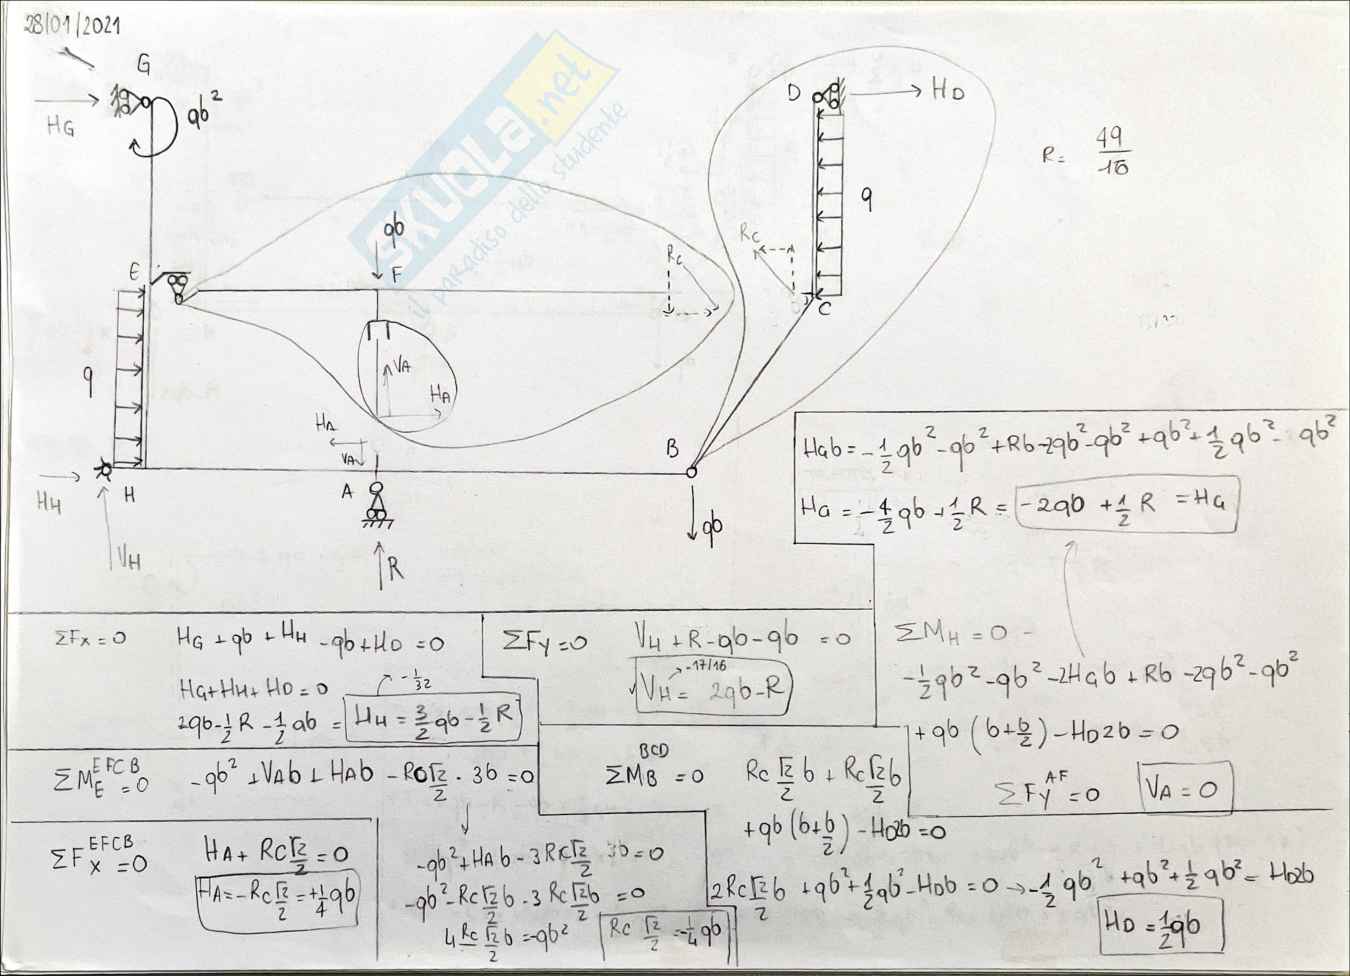 28/01/2021
G
HG
qb²
D
HD
R = 49/16
q
qb
F
Rc
Rc
E
C
q
VA
HA
HA
VA
B
HH
H
A
VH
R
qb
SKUOLA.net
il paradiso dello studente
HGb = -1/2 qb² - qb² + Rb - 2qb² - qb² + qb² + 1/2 qb² - qb²
HG = -4/2 qb + 1/2 R = -2qb + 1/2 R = HG
ΣFx = 0 HG + qb + HH - qb + HD = 0
HG + HH + HD = 0
-1/32
2qb - 1/2 R - 1/2 qb = HH = 3/2 qb - 1/2 R
ΣFy = 0 VH + R - qb - qb = 0
-17/16
VH = 2qb - R
ΣMH = 0
-1/2 qb² - qb² - 2HGb + Rb - 2qb² - qb²
+ qb (b + b/2) - HD2b = 0
ΣFy^AF = 0 VA = 0
ΣM_E^EFCB = 0 -qb² + VAb + HAb - Rc √2/2 · 3b = 0
-qb² + HAb - 3Rc √2/2 3b = 0
-qb² - Rc √2/2 b - 3Rc √2/2 b = 0
4Rc √2/2 b = -qb² Rc √2/2 = -1/4 qb
ΣFx^EFCB = 0 HA + Rc √2/2 = 0
HA = -Rc √2/2 = +1/4 qb
ΣM_B^BCD = 0 Rc √2/2 b + Rc √2/2 b
+ qb (b + b/2) - HD2b = 0
2Rc √2/2 b + qb² + 1/2 qb² - HDb = 0 → -1/2 qb² + qb² + 1/2 qb² = HD2b
HD = 1/2 qb